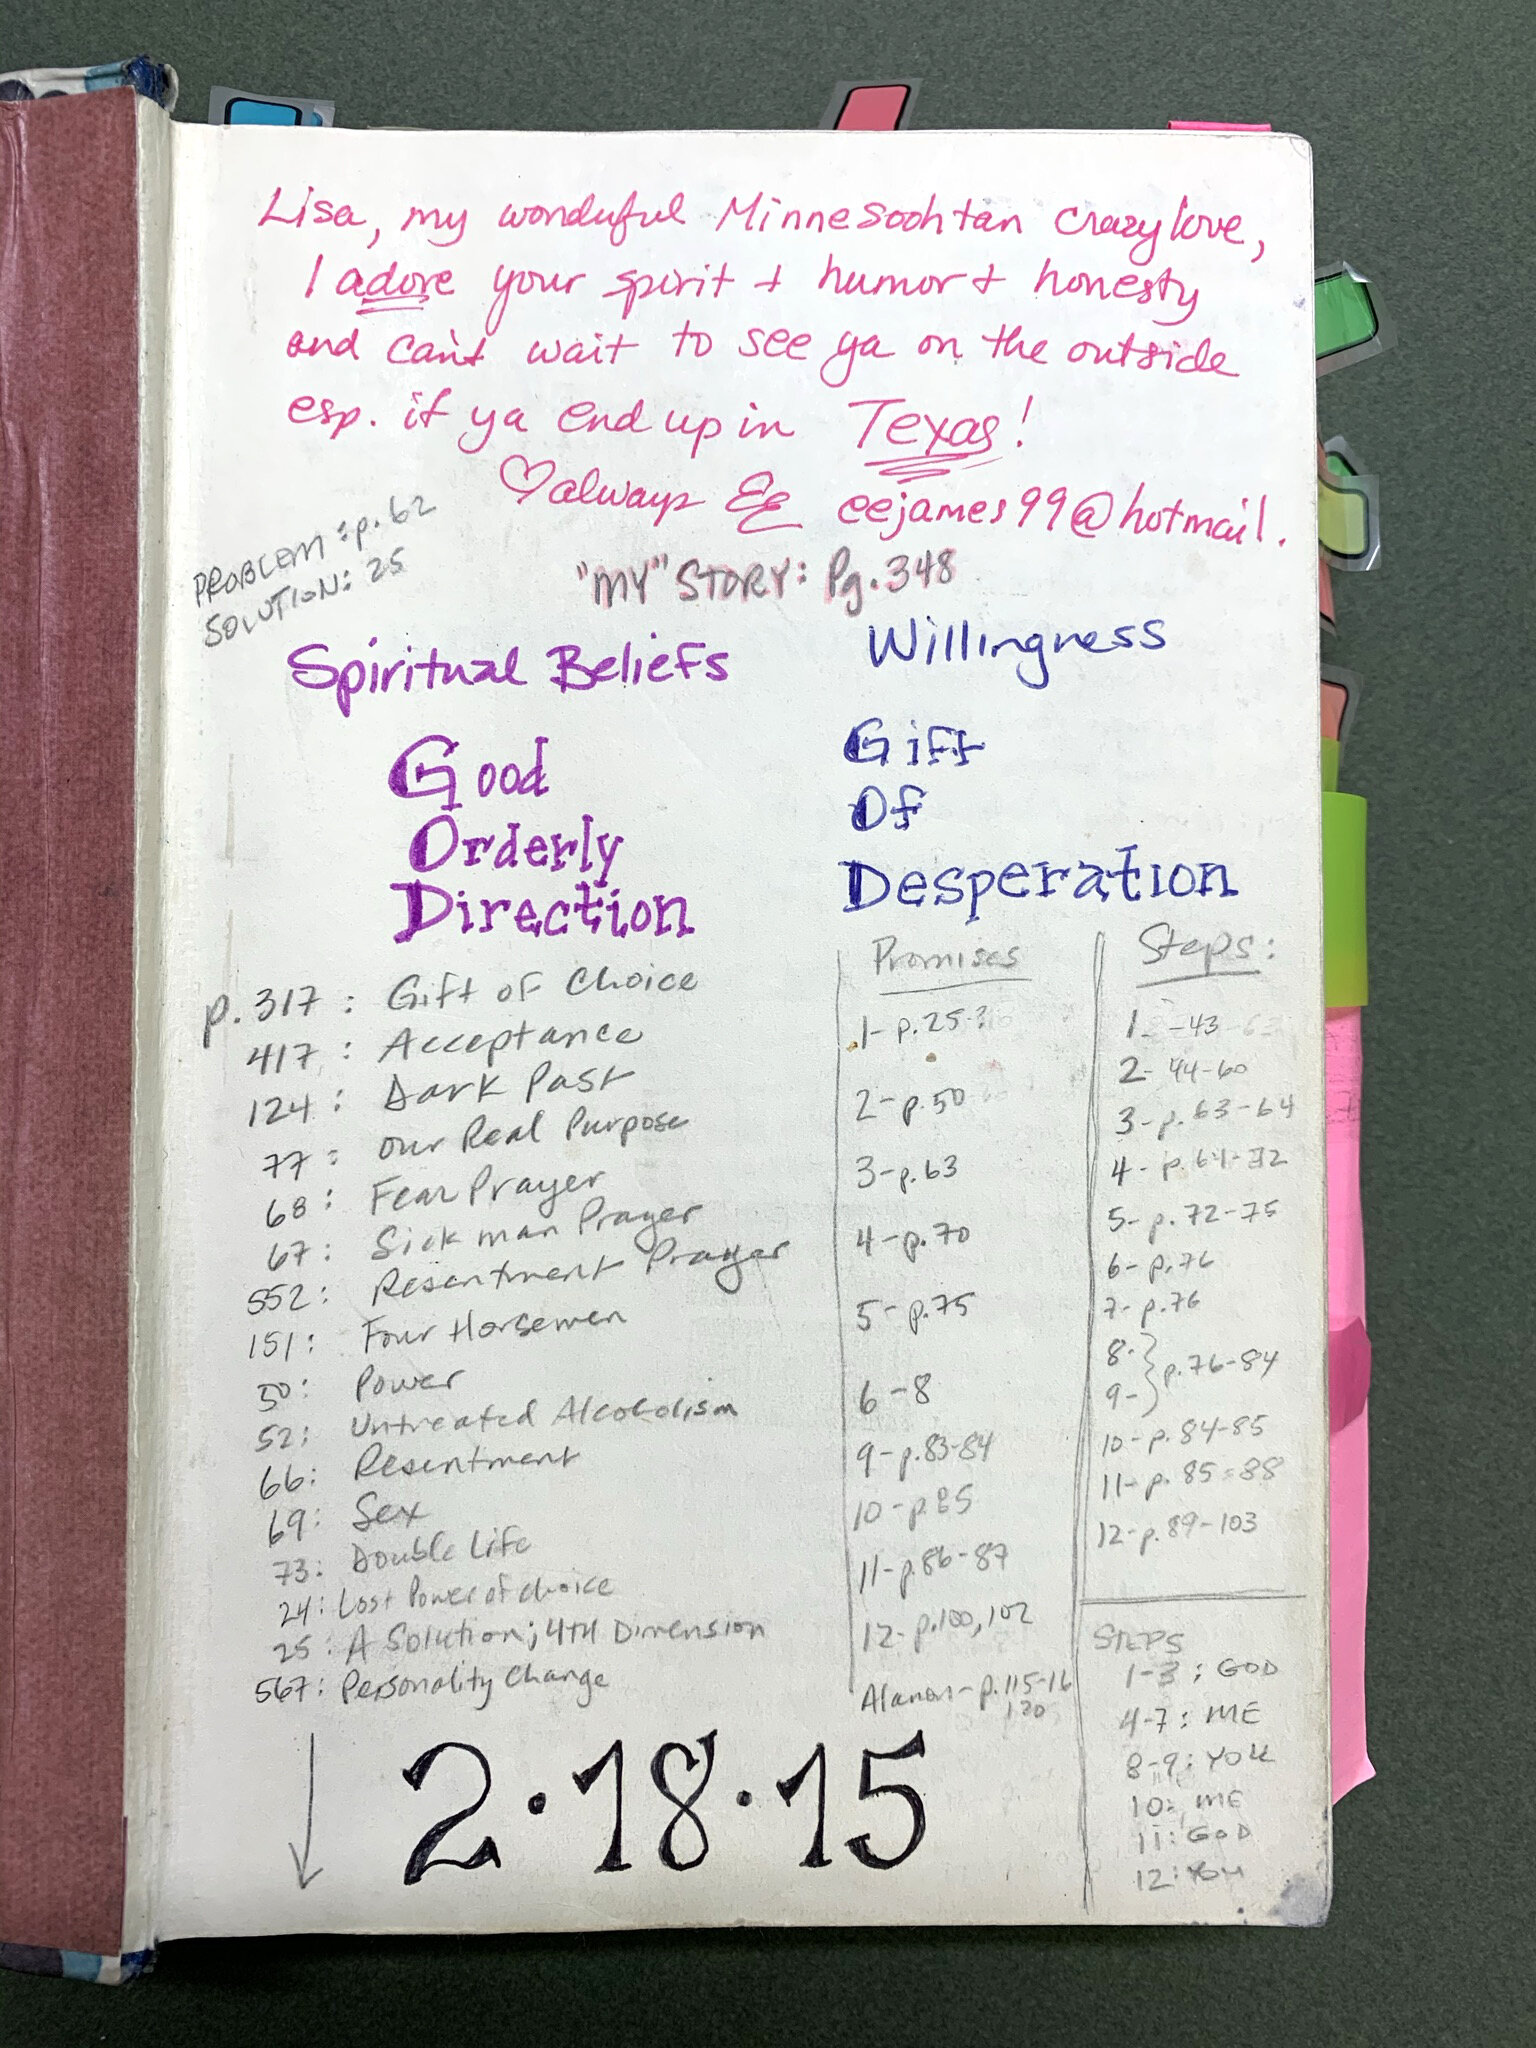 Lisa, my wonderful Minnesoohtan crazy love,
I adore your spirit + humor + honesty
and can't wait to see ya on the outside
esp. if ya end up in Texas!
♡always EE eejames99@hotmail.
PROBLEM: p. 62
SOLUTION: 25
"MY" STORY: Pg. 348
Spiritual Beliefs
Good
Orderly
Direction
Willingness
Gift
Of
Desperation
p. 317: Gift of Choice
417: Acceptance
124: Dark Past
77: Our Real Purpose
68: Fear Prayer
67: Sick man Prayer
552: Resentment Prayer
151: Four Horsemen
50: Power
52: Untreated Alcoholism
66: Resentment
69: Sex
73: Double Life
24: Lost Power of choice
25: A Solution; 4TH Dimension
567: Personality Change
Promises
1- p. 25
2- p. 50
3- p. 63
4- p. 70
5- p. 75
6 - 8
9- p. 83-84
10- p. 85
11- p. 86-87
12- p. 100, 102
Alanon- p. 115-16
120
Steps:
1- -43
2- 44-60
3- p. 63-64
4- p. 64-72
5- p. 72-75
6- p. 76
7- p. 76
8- } p. 76-84
9- }
10- p. 84-85
11- p. 85-88
12- p. 89-103
STEPS
1-3: GOD
4-7: ME
8-9: YOU
10: ME
11: GOD
12: YOU
2·18·15